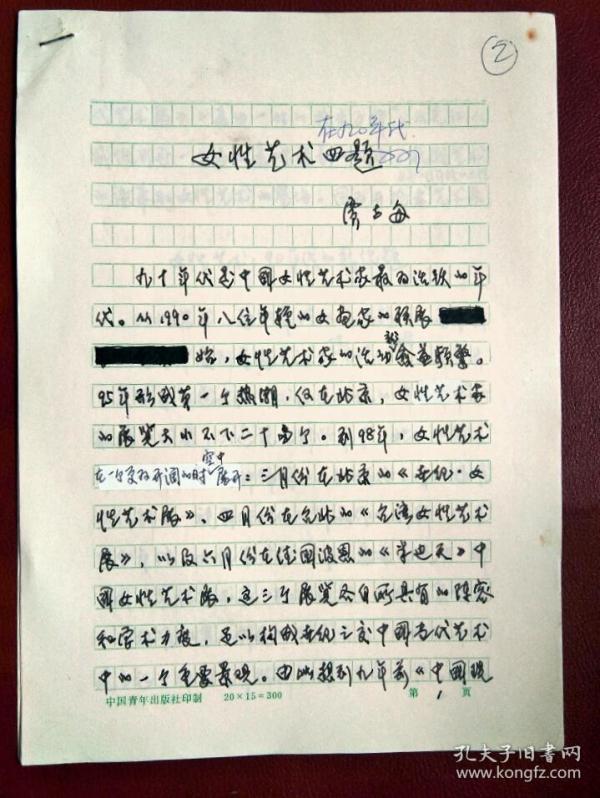 ②
在九十年代
女性艺术四题
九十年代是中国女性艺术家最为活跃的年
代。从1990年八位年轻的女画家的联展
始，女性艺术家的活动愈益频繁。
95年形成第一个热潮，仅在北京，女性艺术家
的展览大小不下二十多个。到98年，女性艺术
在一个更为开阔的时空中展开：三月份在北京的《世纪·女
性艺术展》、四月份在台北的《台湾女性艺术
展》，以及六月份在德国波恩的《半边天》中
国女性艺术展，这三个展览各自所具有的阵容
和学术力度，足以构成世纪之交中国当代艺术
中的一个重要景观。由此想到九年前《中国现
中国青年出版社印制 20×15=300 第 1 页
孔夫子旧书网
www.kongfz.com